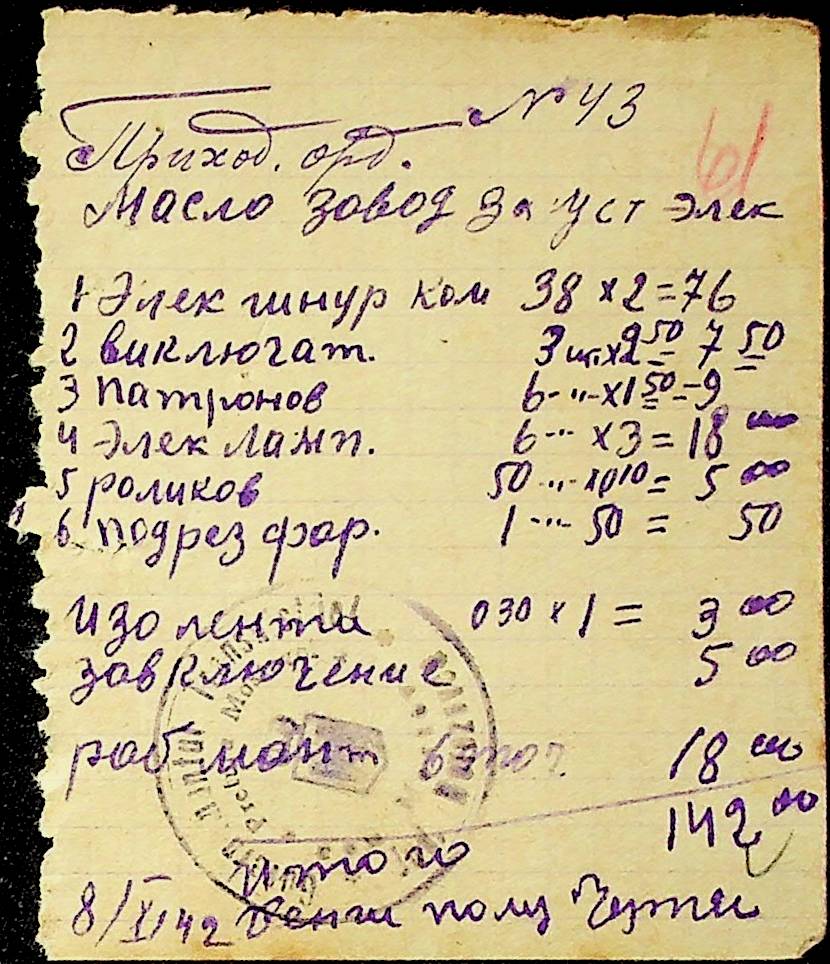 № 43
Приход. орд.
Масло завод за уст элек
1 Элек шнур ком 38 х 2 = 76
2 виключат. 3 шт. х 2 50 = 7 50
3 патронов 6 -"- х 1 50 - 9
4 Элек ламп. 6 -"- х 3 = 18 00
5 роликов 50 -"- х 0 10 = 5 00
6 подрез фар. 1 -"- 50 = 50
изо ленти 030 х 1 = 3 00
завключение 5 00
раб монт 6 точ. 18 00
142 00
Итого
8/XI 42 Денги полу